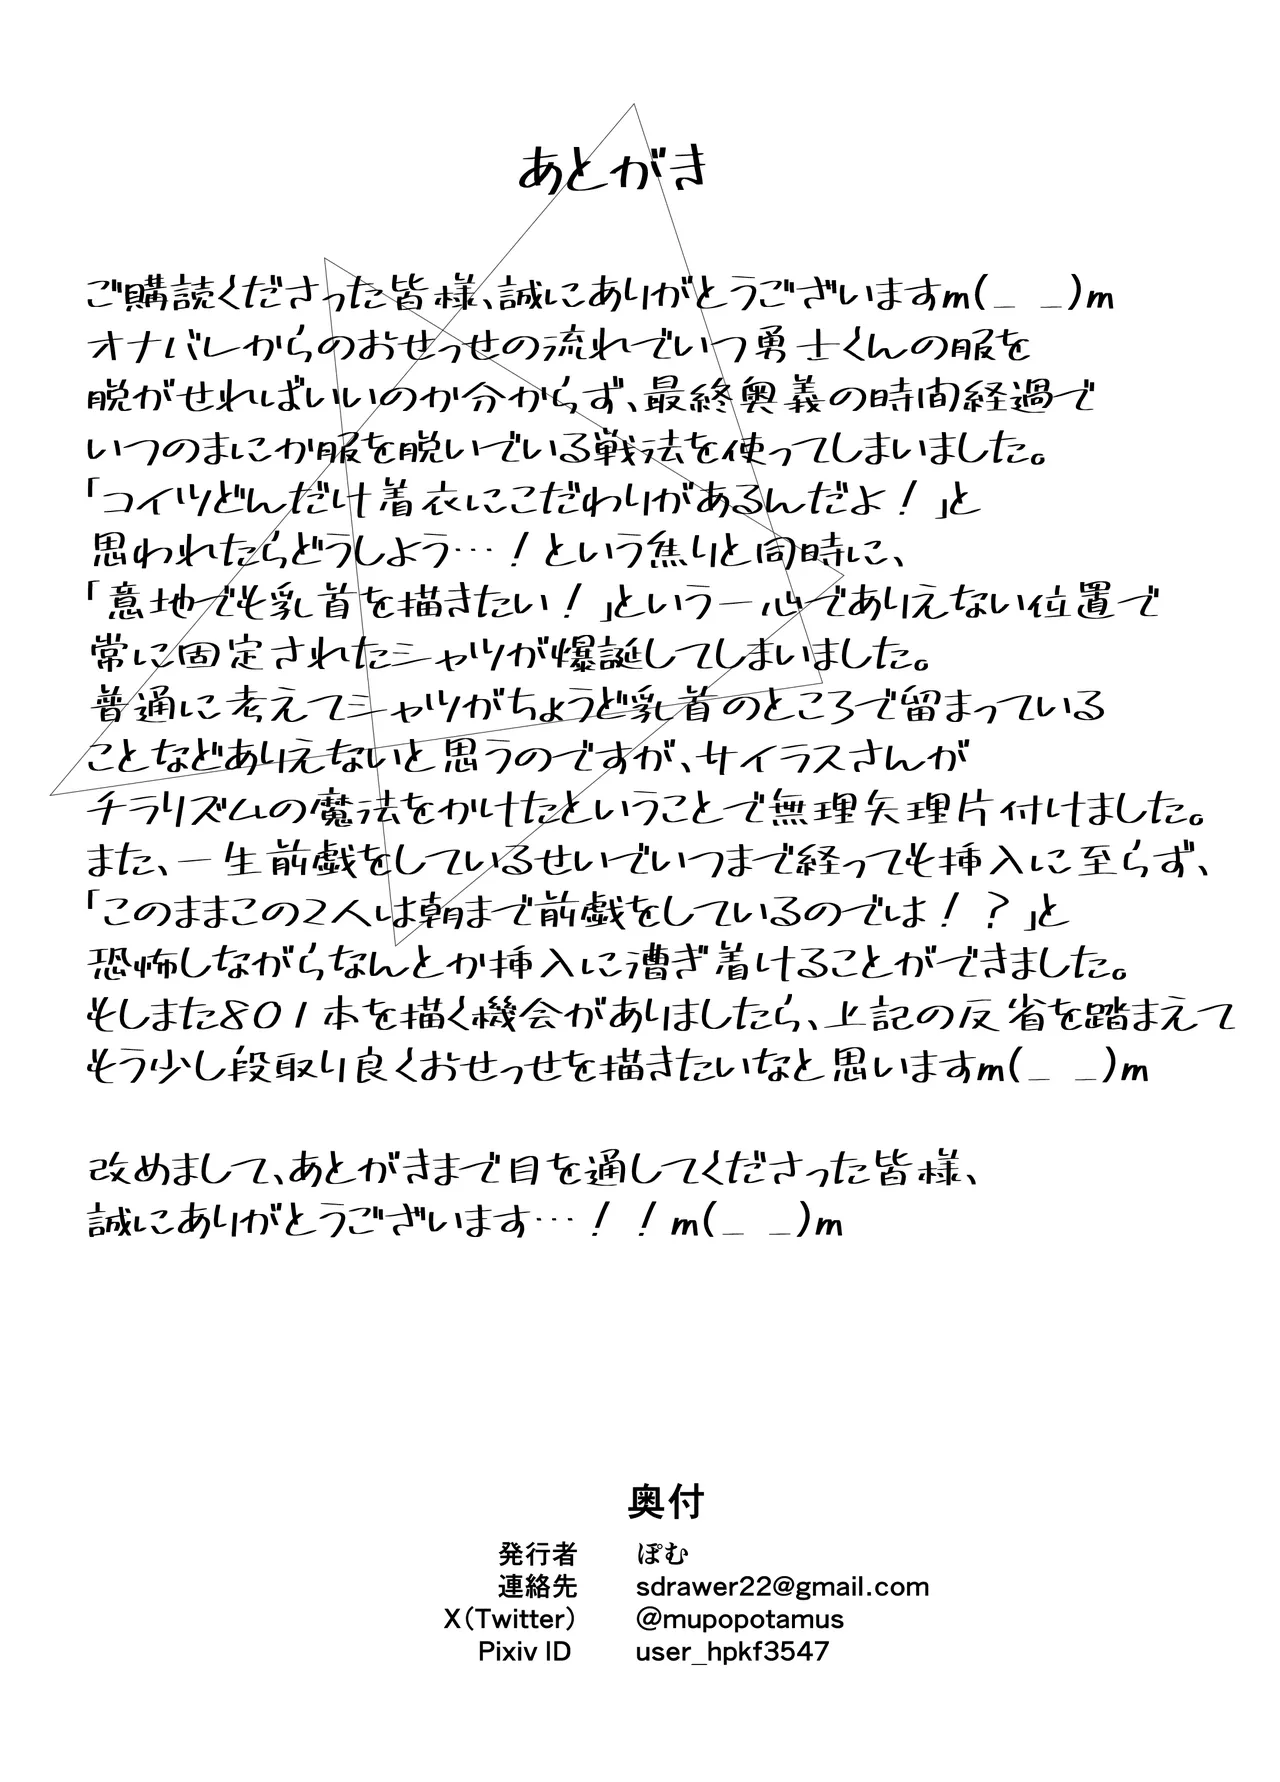 あとがき
ご購読くださった皆様、誠にありがとうございますm(_ _)m
オナバレからのおせっせの流れでいつ勇士くんの服を
脱がせればいいのか分からず、最終奥義の時間経過で
いつのまにか服を脱いでいる戦法を使ってしまいました。
「コイツどんだけ着衣にこだわりがあるんだよ！」と
思われたらどうしよう…！という焦りと同時に、
「意地でも乳首を描きたい！」という一心でありえない位置で
常に固定されたシャツが爆誕してしまいました。
普通に考えてシャツがちょうど乳首のところで留まっている
ことなどありえないと思うのですが、サイラスさんが
チラリズムの魔法をかけたということで無理矢理片付けました。
また、一生前戯をしているせいでいつまで経っても挿入に至らず、
「このままこの2人は朝まで前戯をしているのでは！？」と
恐怖しながらなんとか挿入に漕ぎ着けることができました。
もしまた801本を描く機会がありましたら、上記の反省を踏まえて
もう少し段取り良くおせっせを描きたいなと思いますm(_ _)m
改めまして、あとがきまで目を通してくださった皆様、
誠にありがとうございます…！！m(_ _)m
奥付
発行者 ぽむ
連絡先 sdrawer22@gmail.com
X（Twitter） @mupopotamus
Pixiv ID user_hpkf3547